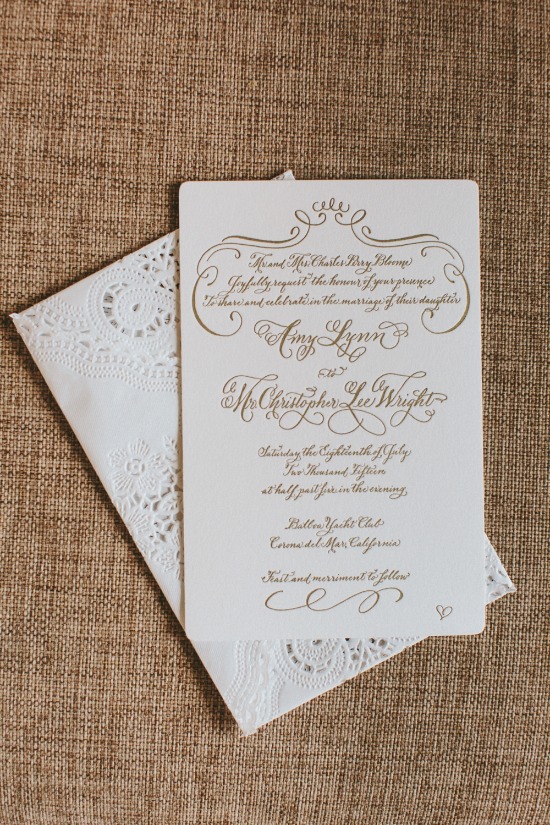 Mr. and Mrs. Charles Berry Bloome
Joyfully request the honour of your presence
To share and celebrate in the marriage of their daughter
Amy Lynn
to
Mr. Christopher Lee Wright
Saturday the Eighteenth of July
Two Thousand Fifteen
at half past five in the evening
Balboa Yacht Club
Corona del Mar, California
Feast and merriment to follow